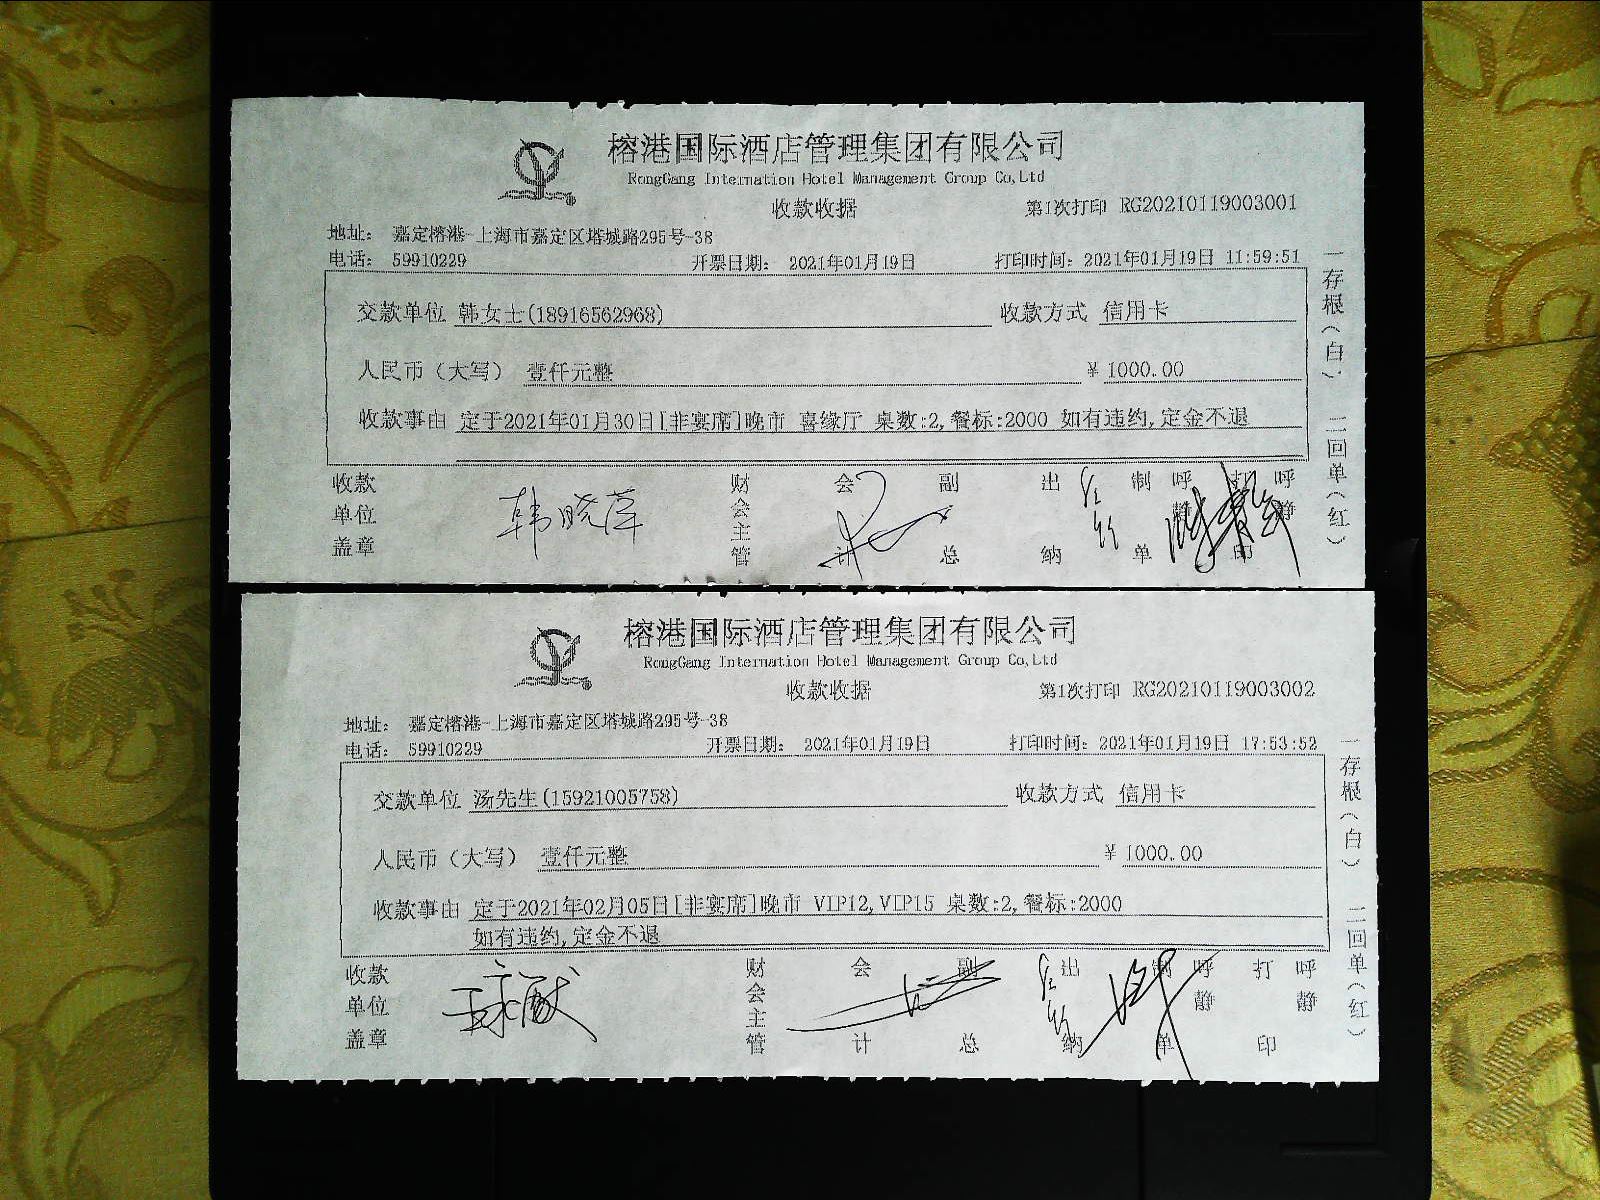 榕港国际酒店管理集团有限公司
RongGang Internation Hotel Management Group Co,Ltd
收款收据 第1次打印 RG20210119003001
地址： 嘉定榕港-上海市嘉定区塔城路295号-38
电话： 59910229 开票日期： 2021年01月19日 打印时间：2021年01月19日 11:59:51
交款单位 韩女士(18916562968) 收款方式 信用卡
人民币（大写） 壹仟元整 ￥ 1000.00
收款事由 定于2021年01月30日[非宴席]晚市 喜缘厅 桌数:2,餐标:2000 如有违约,定金不退
收款单位盖章 韩晓萍 财会主管 会计 副总 出纳 制单 呼静 打印 呼静
一存根（白） 二回单（红）
榕港国际酒店管理集团有限公司
RongGang Internation Hotel Management Group Co,Ltd
收款收据 第1次打印 RG20210119003002
地址： 嘉定榕港-上海市嘉定区塔城路295号-38
电话： 59910229 开票日期： 2021年01月19日 打印时间：2021年01月19日 17:53:52
交款单位 汤先生(15921005758) 收款方式 信用卡
人民币（大写） 壹仟元整 ￥ 1000.00
收款事由 定于2021年02月05日[非宴席]晚市 VIP12,VIP15 桌数:2,餐标:2000
如有违约,定金不退
收款单位盖章 财会主管 会计 副总 出纳 制单 呼静 打印 呼静
一存根（白） 二回单（红）